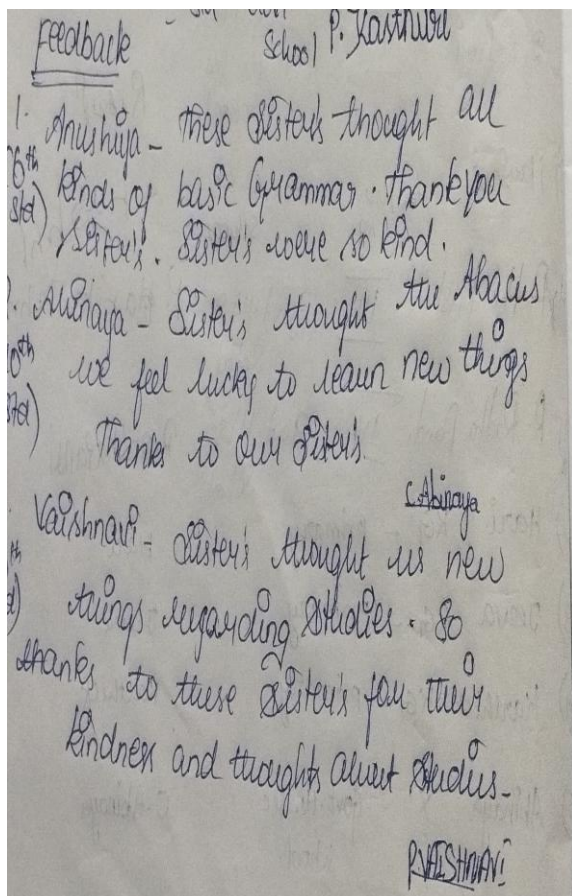 Feedback
School P. Kasthuri
1. Anushiya - These Sister's thought all
6th kinds of basic Grammar. Thank you
std) Sister's. Sister's were so kind.
Abinaya - Sister's thought the Abacus
we feel lucky to learn new things
std) Thanks to our Sister's.
C. Abinaya
Vaishnavi - Sister's thought us new
things regarding Studies. So
thanks to these Sister's for their
kindness and thoughts about Studies-
P. VAISHNAVI